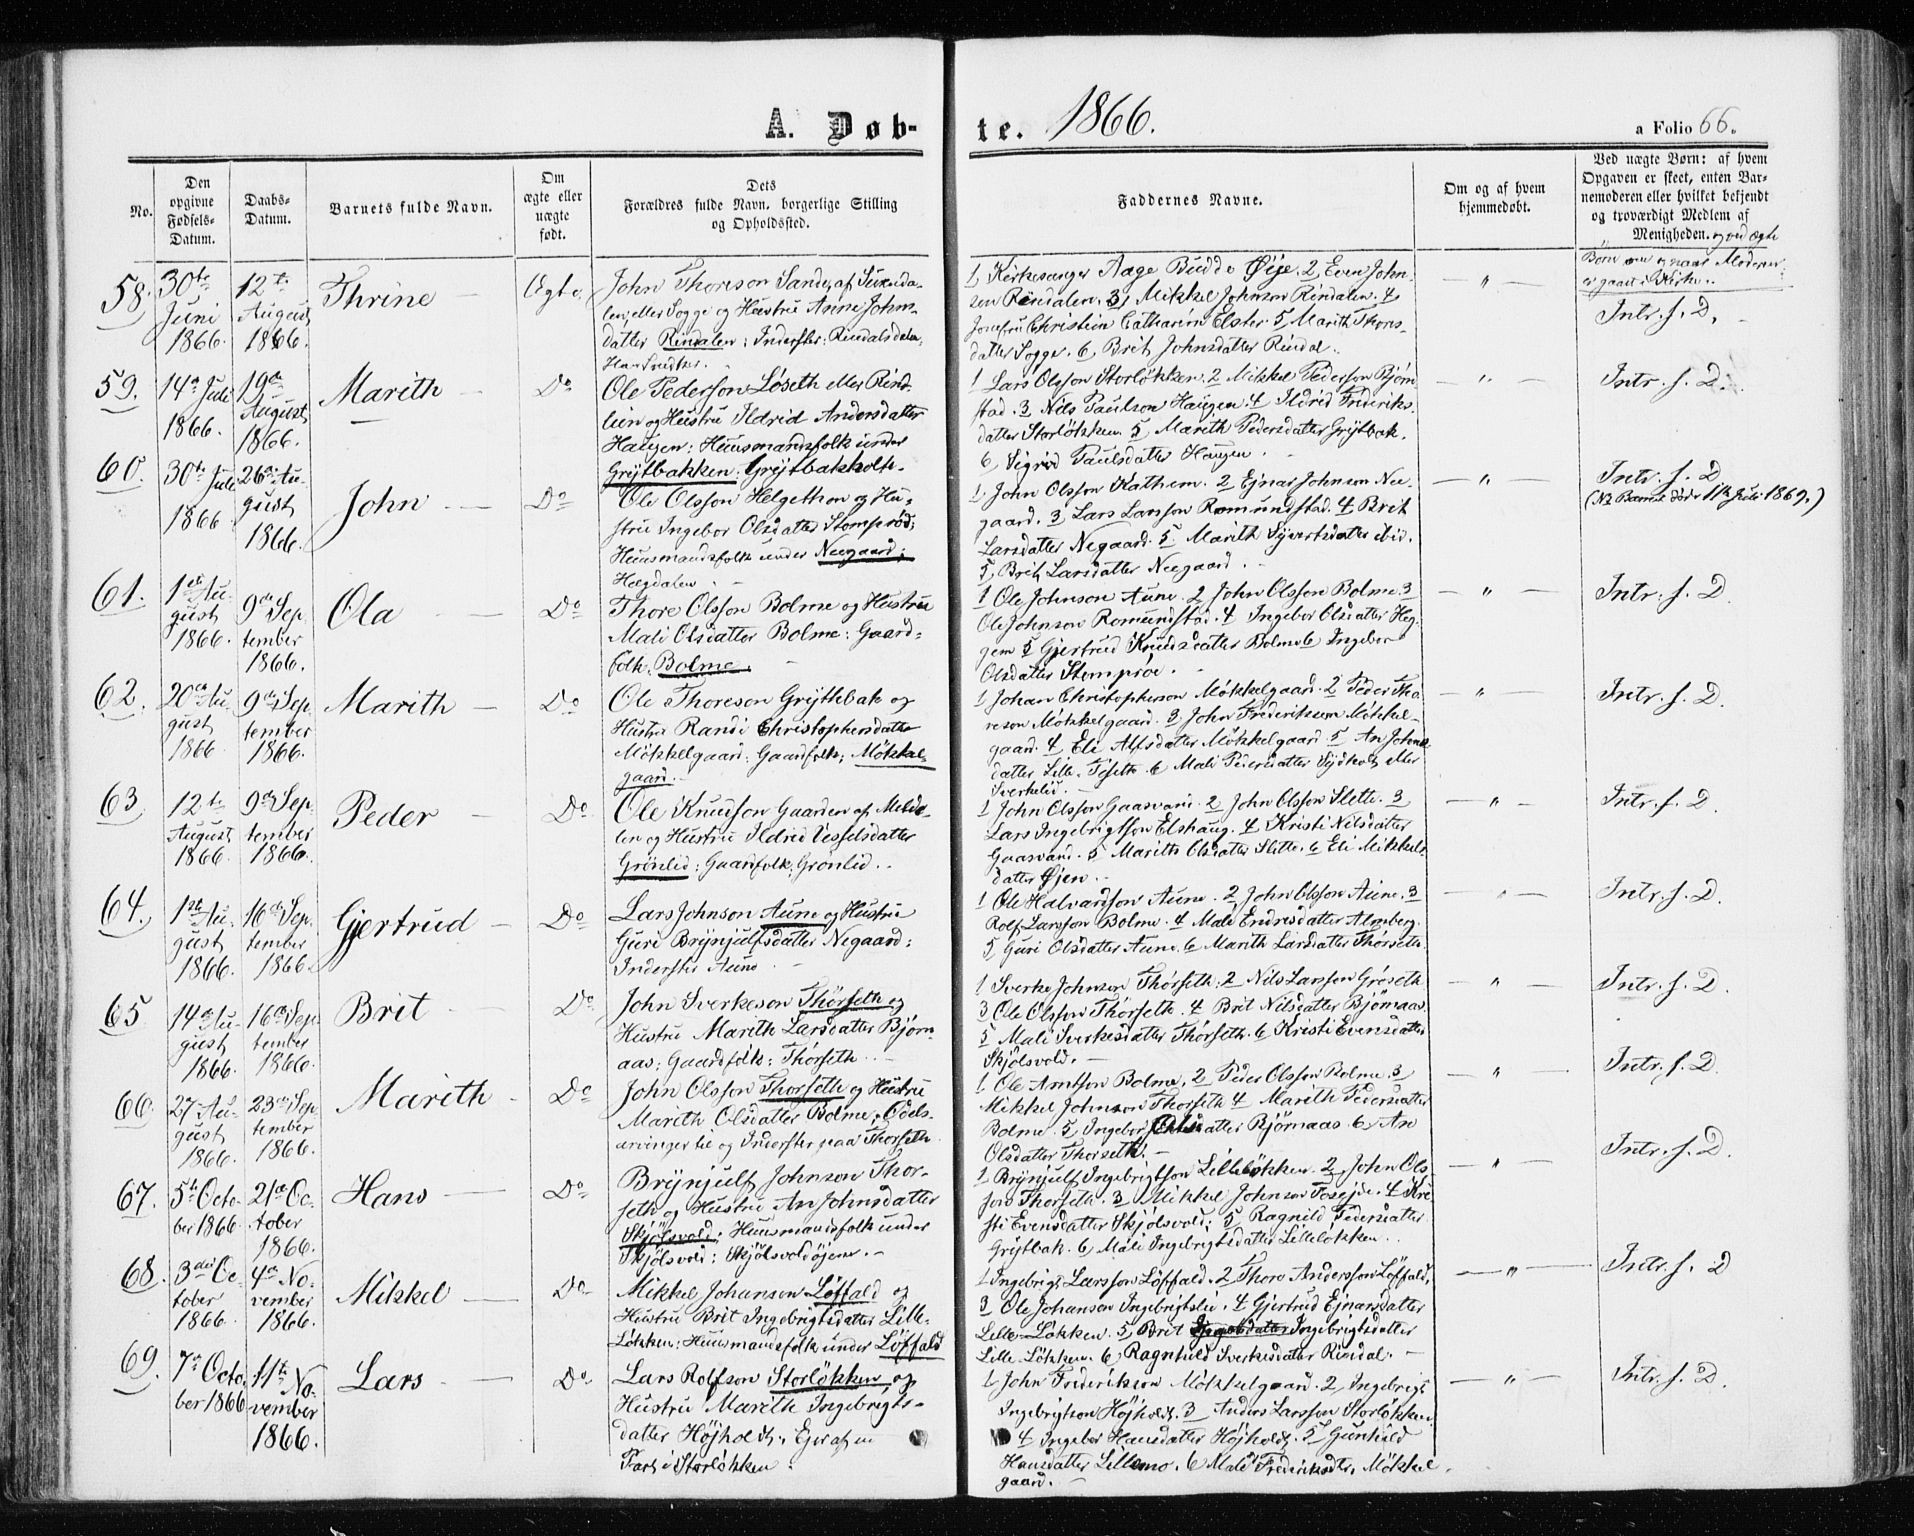 A. Døb-
te. 1866.
a Folio 66.
No.
Den opgivne Fødsels-Datum.
Daabs-Datum.
Barnets fulde Navn.
Om ægte eller uægte født.
Dets Forældres fulde Navn, borgerlige Stilling og Opholdssted.
Faddernes Navne.
Om og af hvem hjemmedøbt.
Ved uægte Børn: af hvem
Opgaven er skeet, enten Bar-
nemoderen eller hvilket bekjendt
og troværdigt Medlem af
Menigheden. og ved ægte
Børn om og naar Moderen
er gaaet i Kirke.
58.
30te Juni 1866.
12te August 1866.
Thrine
Ægte
John Thoreson Sande, af
len, eller Sogge og Hustru Anne John-
datter Rindalen; Inderster: Rindalsdalen,
1, Kirkesanger Aage Budde Øije. 2, Even John-
son Rindalen. 3, Mikkel Johnson Rindalen. 4
Jomfru Christein Catharina Elster. 5, Marith Thors-
datter Sogge. 6, Brit Johnsdatter Rindal.
— " —
Intr. f. D.
59.
14de Juli 1866.
19de August 1866.
Marith
Do
Ole Pederson Løseth eller Rind-
lien og Hustru Ildrid Andersdatter
Haugen: Huusmandsfolk under
Grytbakken: Grytbakholte.
1 Lars Olsson Storløkken. 2 Mikkel Pederson Bjørn-
stad. 3 Nils Paulson Haugen. 4 Ildrid Frederiks-
datter Storløkken. 5 Marith Pedersdatter Grytbak.
6 Sigrid Paulsdatter Haugen.
— " —
Intr. f. D.
60.
30te Juli 1866
26de August 1866.
John
Do
Ole Olsson Helgethon og Hu-
stru Ingebor Olsdatter Stomprød;
Huusmandsfolk under Neegaard;
Hegdalen.
1, John Olsson Kathem. 2 Ejnar Johnson Nee-
gaard. 3 Lars Larsson Romundstad. 4 Brit
Larsdatter Negaard. 5 Marith Syvertsdatter ibid.
5, Brit Larsdatter Neegaard.
— " —
Intr. f. D
(NB Barnet døde 11te Juli 1869.)
61.
1ste August 1866.
9de September 1866.
Ola
Do
Thore Olsson Bolme og Hustru
Mali Olsdatter Bolme: Gaard-
folk: Bolme.
1 Ole Johnson Aune. 2 John Olsson Bolme. 3
Ole Johnson Romundstad. 4 Ingebor Olsdatter Heg-
gem 5 Gjertrud Knudsdatter Bolme 6 Ingebor
Olsdatter Stomprøe.
— " —
Intr. f. D.
62.
20de August 1866
9de September 1866.
Marith
Do
Ole Thoreson Grytbak og
Hustru Randi Christophersdatter
Møkkelgaard: Gaardfolk; Møkkel-
gaard.
1 Johan Christopherson Møkkelgaard. 2 Peder Tho-
reson Møkkelgaard. 3 John Frederikson Møkkel-
gaard. 4 Eli Alfsdatter Møkkelgaard 5 An Johns-
datter Lille-Tøseth. 6 Mali Pedersdatter Sydholt eller
Sverkelid.
— " —
Intr. f. D.
63
12te August 1866.
9de September 1866.
Peder
Do
Ole Knudson Gaarden af Melda-
len og Hustru Ildrid Vesselsdatter
Grønlid: Gaardfolk; Grønlid.
1 John Olsson Gaasvand. 2 John Olsson Slette. 3
Lars Ingebrigtson Elshaug. 4 Kristi Nilsdatter
Gaasvand. 5 Marith Olsdatter Slette. 6 Eli Mikkels-
datter Øjen.
— " —
Intr. f. D
64.
1ste August 1866.
16de September 1866.
Gjertrud
Do
Lars Johnson Aune og Hustru
Guri Brynjulfsdatter Negaard:
Inderster Aune
1 Ole Halvardson Aune. 2, John Olsson Aune. 3
Rolf Larsson Bolme. 4 Mali Endresdatter Almberg.
5, Guri Olsdatter Aune. 6 Marith Larsdatter Thørseth.
— " —
Intr. f. D.
65
14de August 1866.
16de September 1866.
Brit
Do
John Sverkeson Thørseth og
Hustru Marith Larsdatter Bjørn-
aas: Gaardfolk: Thørseth.
1 Sverke Johnson Thørseth. 2 Nils Larsson Grøseth.
3 Ole Olsson Thørseth. 4 Brit Nilsdatter Bjørnaas.
5 Mali Sverkesdatter Thørseth. 6 Kristi Evensdatter
Skjølsvold.
— " —
Intr. f. D.
66.
27 August 1866.
23de September 1866.
Marith
Do
John Olsson Thorseth og Hustru
Marith Olsdatter Bolme; Odels-
arvinger til og Inderster paa Thorseth.
1. Ole Arntson Bolme, 2 Peder Olsson Bolme. 3
Mikkel Johnson Thorseth 4 Marith Pedersdatter
Bolme. 5, Ingebor Olsdatter Bjørnaas. 6 An
Olsdatter Thorseth.
— " —
Intr. f. D.
67.
5te October 1866
21de October 1866.
Hans
Do
Brynjulf Johnson Thor-
seth og Hustru An Johnsdatter
Skjølsvold: Huusmandsfolk under
Skjølsvold: Skjølsvoldøjene.
1 Brynjulf Ingebrigtson Lilleløkken. 2, John Ols-
son Thorseth. 3 Mikkel Johnson Foseide. 4 Kri-
sti Evensdatter Skjølsvold; 5 Ragnild Pedersdatter
Grytbak. 6, Mali Ingebrigtsdatter Lilleløkken.
— " —
Intr. f. D.
68.
3die October 1866.
4de November 1866.
Mikkel
Do
Mikkel Johanson Løffald og
Hustru Brit Ingebrigtsdatter Lille-
Løkken: Huusmandsfolk under Løffald
1 Ingebrigt Larsson Løffald. 2 Thore Andersson Løffald,
3 Ole Johanson Ingebrigtslie. 4 Gjertrud Ejnarsdatter
Lille-Løkken. 5, Brit Ingebrigtsdatter
Lille-Løkken. 6, Ragnhild Sverkesdatter Rindal.
— " —
Intr. f. D
69.
7de October 1866
11te November 1866.
Lars
Do
Lars Rolfson Storløkken og
Hustru Marith Ingebrigts-
datter Højholdt; Ejer af en
Part i Storløkken:
1 John Frederikson Møkkelgaard. 2, Ingebrigt
Ingebrigtson Højholdt. 3 Anders Larsson Storløkken.
4 Ingebor Hansdatter Højholdt. 5 Gunhild
Hansdatter Lillemo. 6 Mali Frederiksdtr. Møkkel-
gaard.
— " —
Intr. f. D.